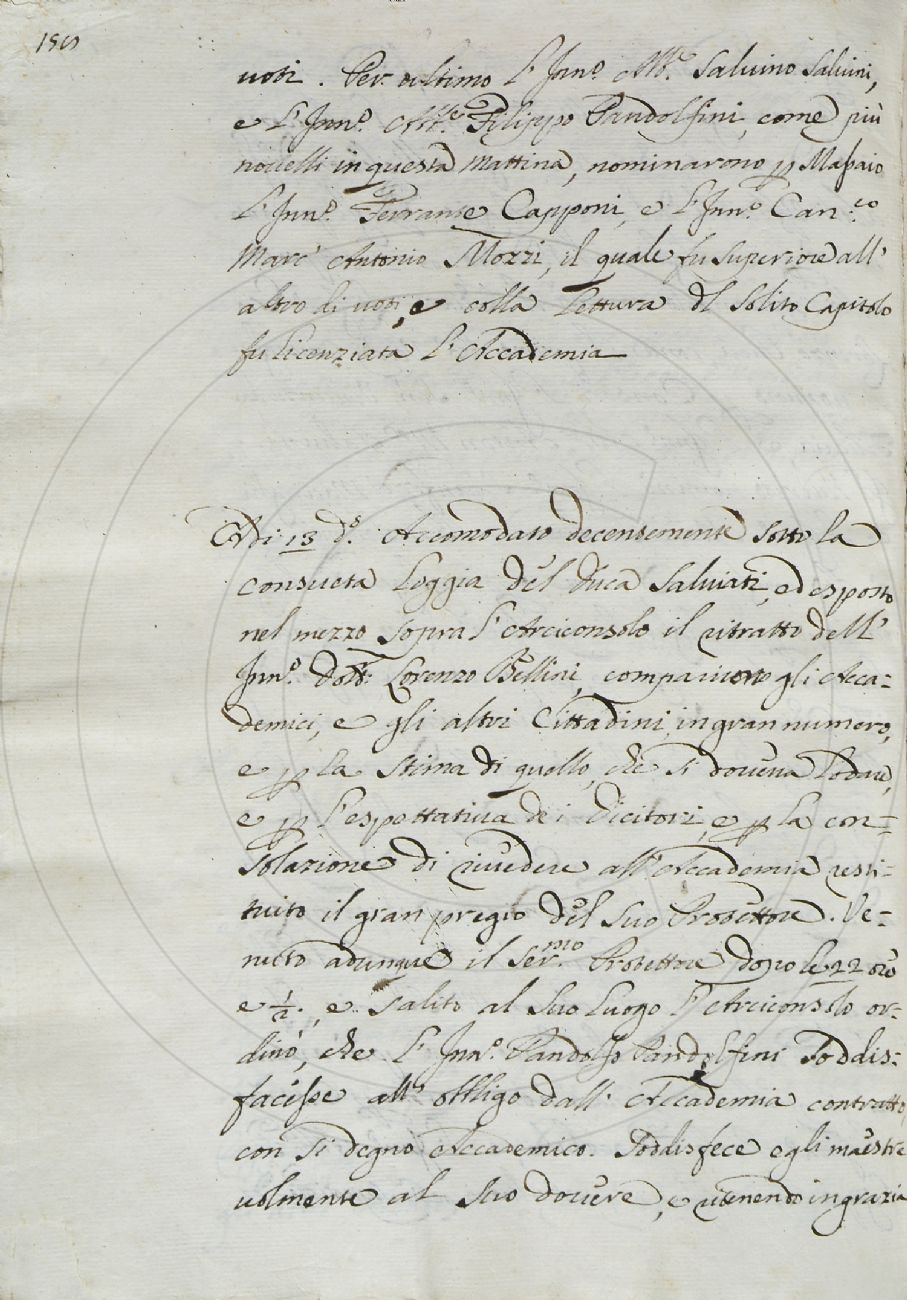 voti. Per ultimo l'Inn.º Ab.e Salvino Salvini,
e l'Inn.º Filippo Pandolfini, come più
novelli in questa mattina, nominarono p Massaio
l'Inn.º Ferrante Capponi, e l'Inn.º Can.co
Marc' Antonio Mozzi, il quale fu superiore all'
altro di voti, e colla lettura dl solito Capitolo
fu licenziata l'Accademia
Adi 13 d.º Accomodato decentemente sotto la
consueta Loggia del Duca Salviati, ed esposto
nel mezzo sopra l'Arciconsolo il ritratto dell'
Inn.º Dott.r Lorenzo Bellini, comparirono gli Acca-
demici, e gli altri Cittadini in gran numero,
e p la stima di quello, che si doveva lodare,
e p l'espettativa dei Dicitori, e p la con-
solazione di rivedere all'Accademia resti-
tuito il gran pregio del suo Protettore. Ve-
nuto adunque il Ser.mo Protettore dopo le 22 ore
e 1/2, e salito al suo luogo l'Arciconsolo or-
dinò, che l'Inn.º Pandolfo Pandolfini soddis-
facesse all'obbligo dall'Accademia contratto
con si degno Accademico. Soddisfece egli maestre
volmente al suo dovere, e venendo in grazia